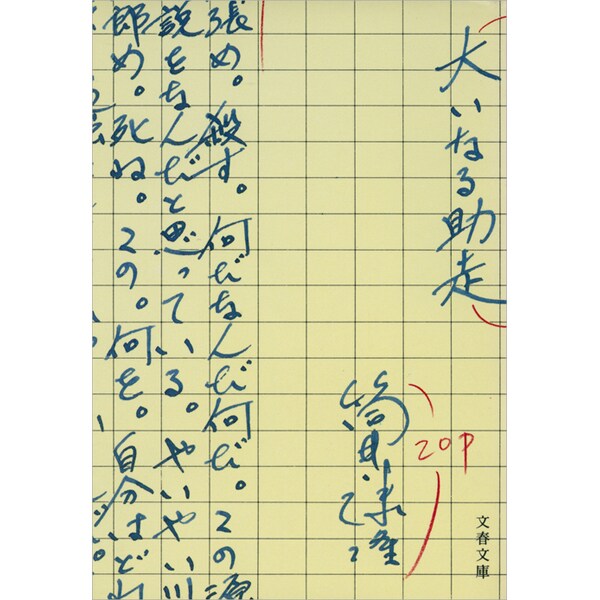 大いなる助走
筒井康隆
20P
文春文庫
張め。殺す。何だなんだ何だ。この源
説をなんだと思っている。やいやい川
郎め。死ね。この。何を。自分はどれ